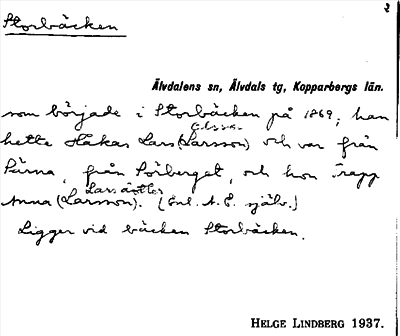 Storbäcken
2
Älvdalens sn, Älvdals tg, Kopparbergs län.
som började i Storbäcken på 1869, han
hette Håkas Lars (Larsson) och var från
Särna, från Sörberget, och hon Trapp
Lars dotter
Anna (Larsson). (Enl. A. E. själv.)
Ligger vid bäcken Storbäcken.
HELGE LINDBERG 1937.